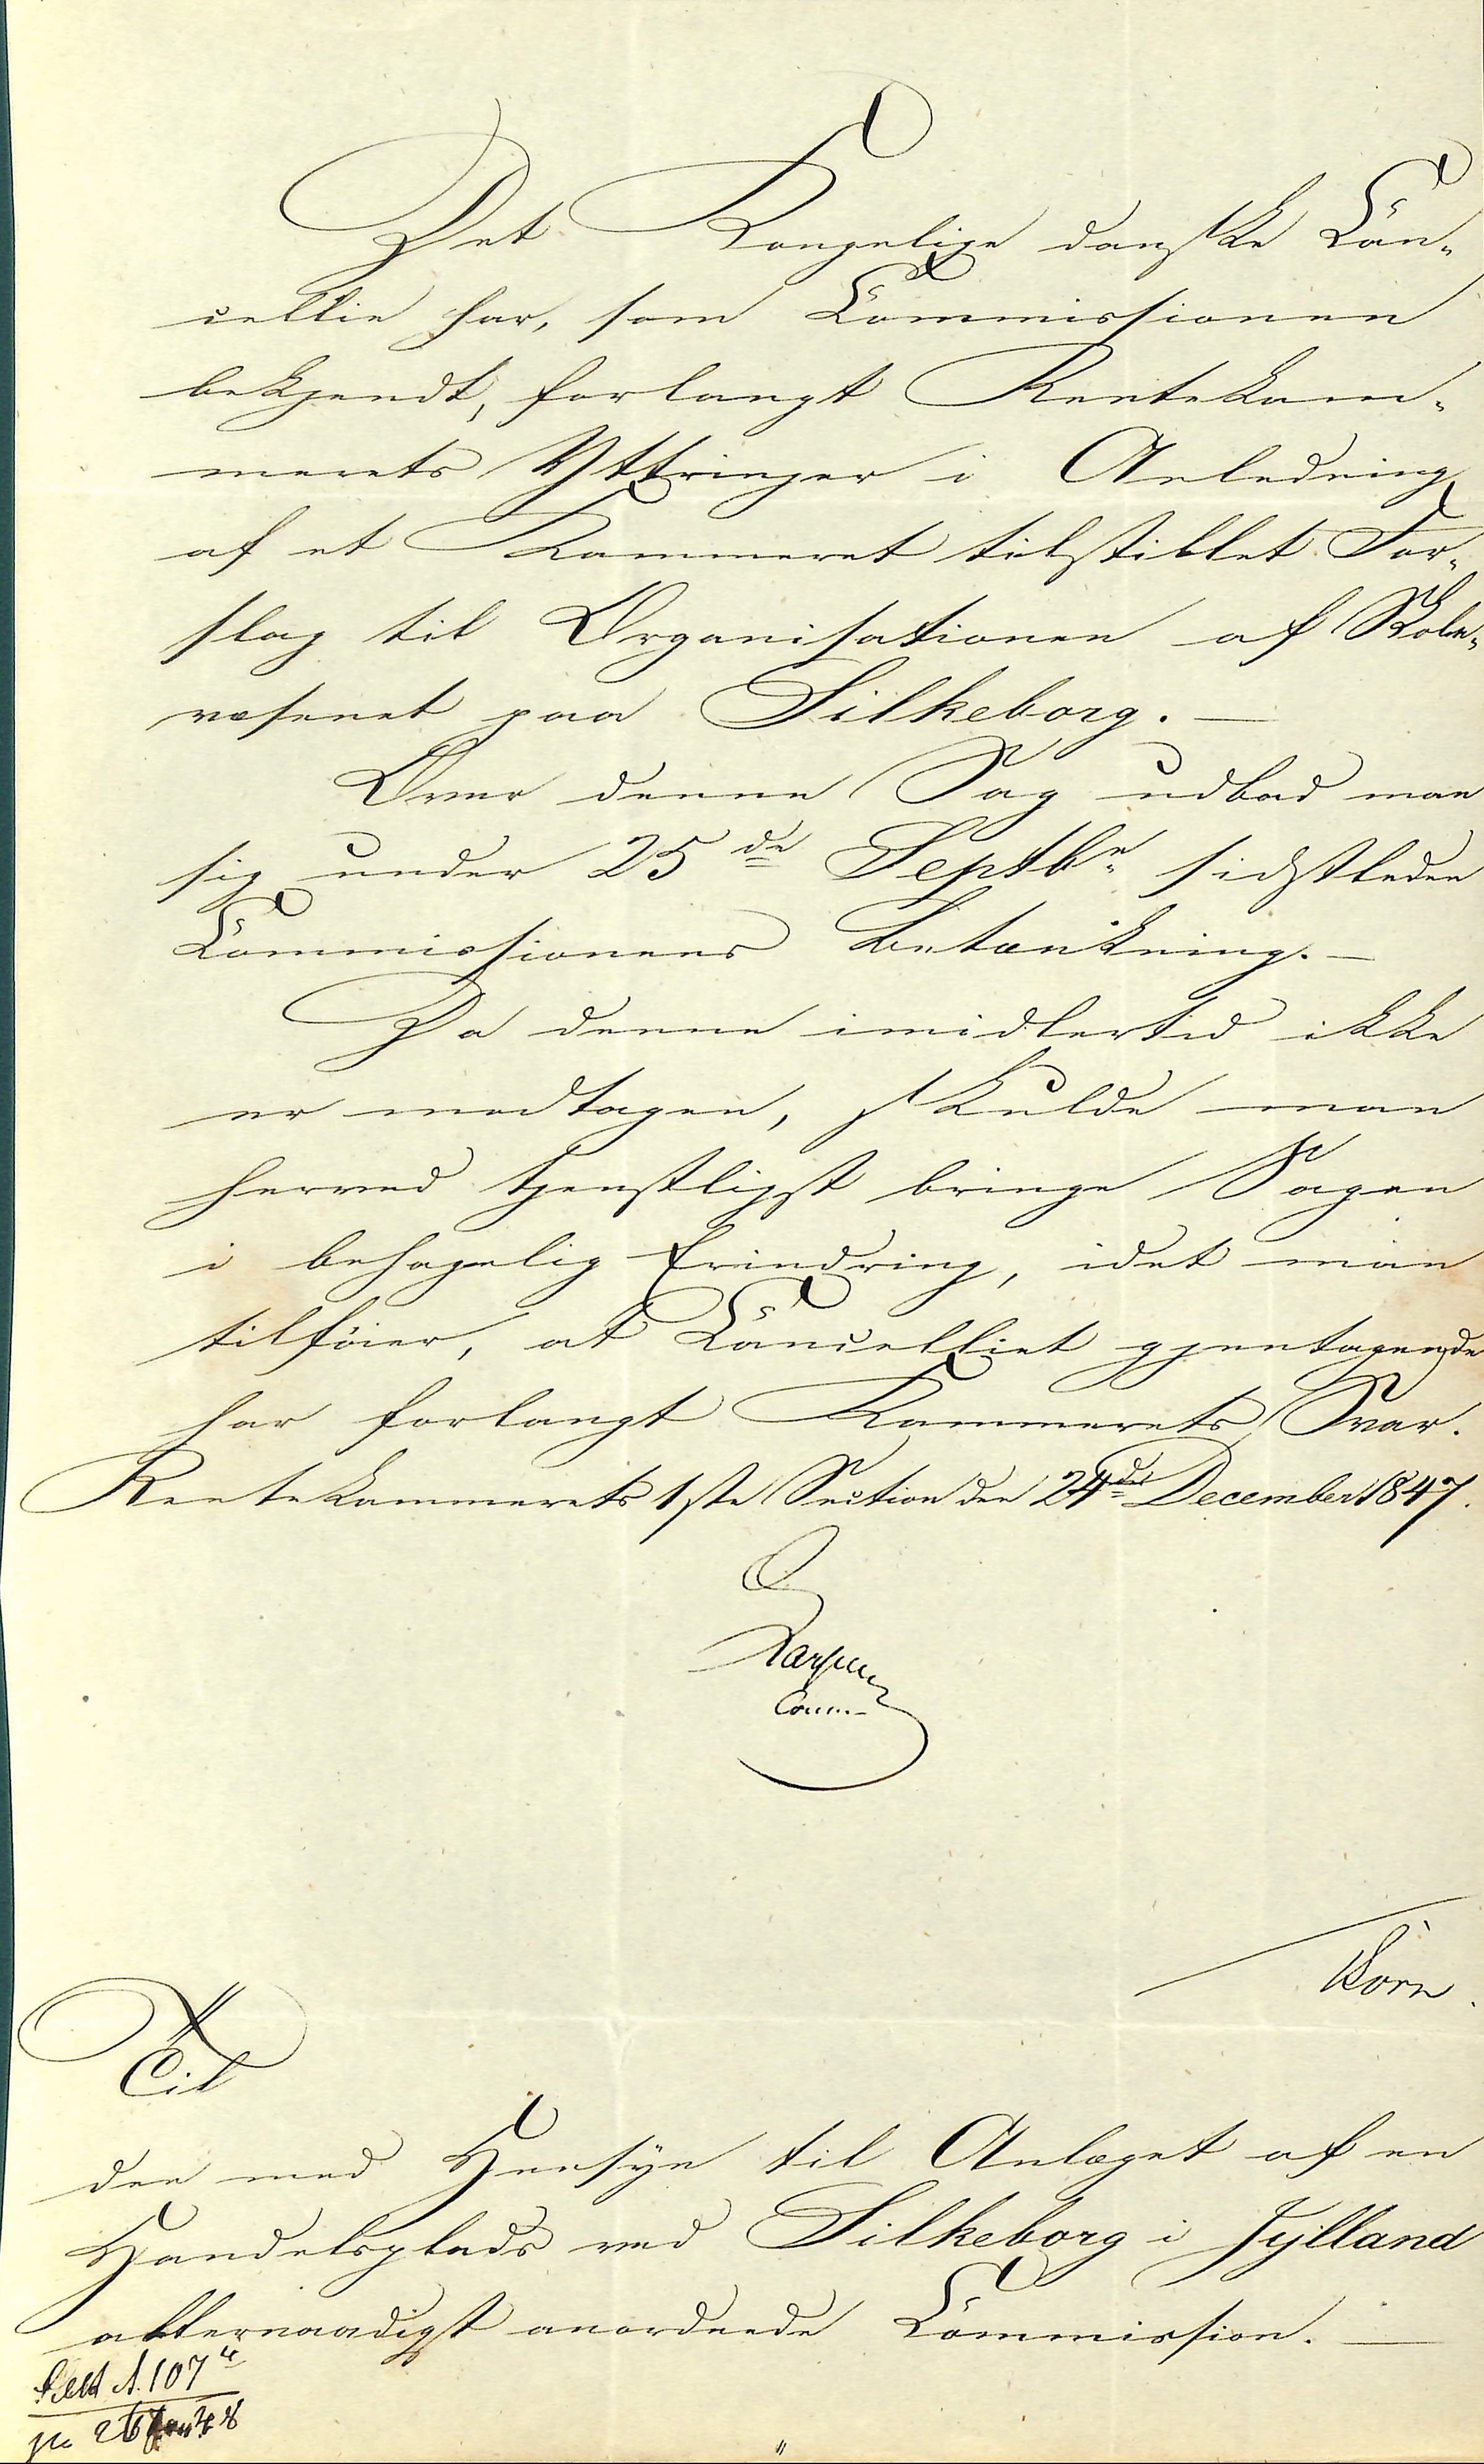 Det Kongelige danske Can-
cellie har, som Commissionen
bekjendt, forlangt Rentekam-
merets Yttringer i Anledning
af et Kammeret tilstillet For-
slag til Organisationen af Skole-
væsenet paa Silkeborg. —
Over denne Sag udbad man
sig under 25de Septbr. sidstleden
Commissionens Betænkning. —
Da denne imidlertid ikke
er modtagen, skulde man
herved tjenstligst bringe Sagen
i behagelig Erindring, idet man
tilföier, at Cancelliet gjentagende
har forlangt Kammerets Svar.
Rentekammerets 1ste Section den 24de December 1847.
Garlieb
Comm.
Korn.
Til
den med Hensyn til Anlæget af en
Handelsplads ved Silkeborg i Jylland
allernaadigst anordnede Commission. —
107